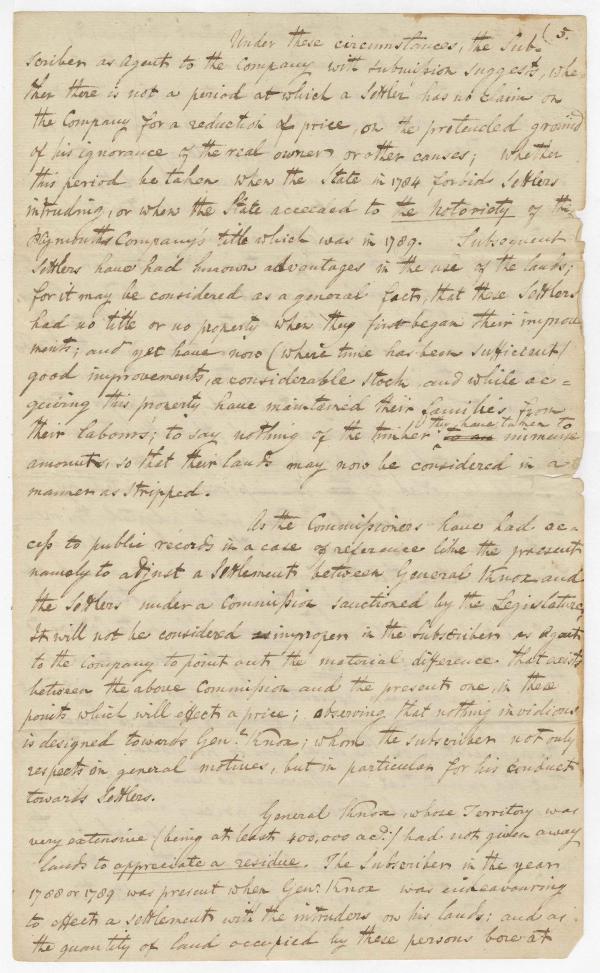 (5.
Under these circumstances, the Sub-
scriber as Agent to the Company with submission suggests, whe
ther there is not a period at which a Settler has no claim on
the Company for a reduction of price, on the pretended ground
of his ignorance of the real owner or other causes; whether
this period be taken when the State in 1784 forbid Settlers
intruding, or when the State acceeded to the Notoriety of the
Plymouth Company's title which was in 1789. Subsequent
Settlers have had known advantages in the use of the lands;
for it may be considered as a general fact, that these Settlers
had no title or no property when they first began their improve
ments; and yet have now (where time has been sufficient)
good improvements, a considerable stock, and while ac-
quiring this property have maintained their families from
their labours; to say nothing of the timber they have taken to
immense
amounts, so that their lands may now be considered in a
manner as stripped.
As the Commissioners have had ac-
cess to public records in a case of reference like the present
namely to adjust a Settlement between General Knox and
the Settlers under a Commission sanctioned by the Legislature,
It will not be considered improper in the Subscriber as Agent
to the Company to point out the material difference that exists
between the above Commission and the present one, in these
points which will effect a price; observing that nothing invidious
is designed towards Genl. Knox; whom the subscriber not only
respects on general motives, but in particular for his conduct
towards Settlers.
General Knox whose Territory was
very extensive (being at least 400,000 acs.) had not given away
lands to appreciate a residue. The Subscriber in the year
1788 or 1789 was present when Genl. Knox was endeavouring
to effect a settlement with the intruders on his lands; and as
the quantity of land occupied by these persons bore at